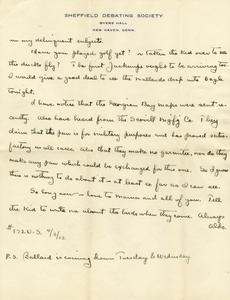 SHEFFIELD DEBATING SOCIETY
BYERS HALL
NEW HAVEN, CONN.
in my delinquent subjects.
Have you played golf yet? or taken the Kid over to see
the ducks fly? The first Jacksnipe ought to be arriving too.
I would give a good deal to see the Mallards drop into Eagle
tonight.
I have notice that the Georgian Bay maps were sent re-
cently. Also have heard from the Scovill M'f'g Co. They
claim that the pin is for military purposes and has proved satis-
factory in all cases. Also that they make no guarantee, nor do they
make any pin which could be exchanged for this one. So I guess
this is nothing to do about it – at least as far as I can see.
So long now – love to Mama and all of you. Tell
the Kid to write me about the birds when they come. Always
Aldo.
P.S. Ballard is coming down Tuesday & Wednesday